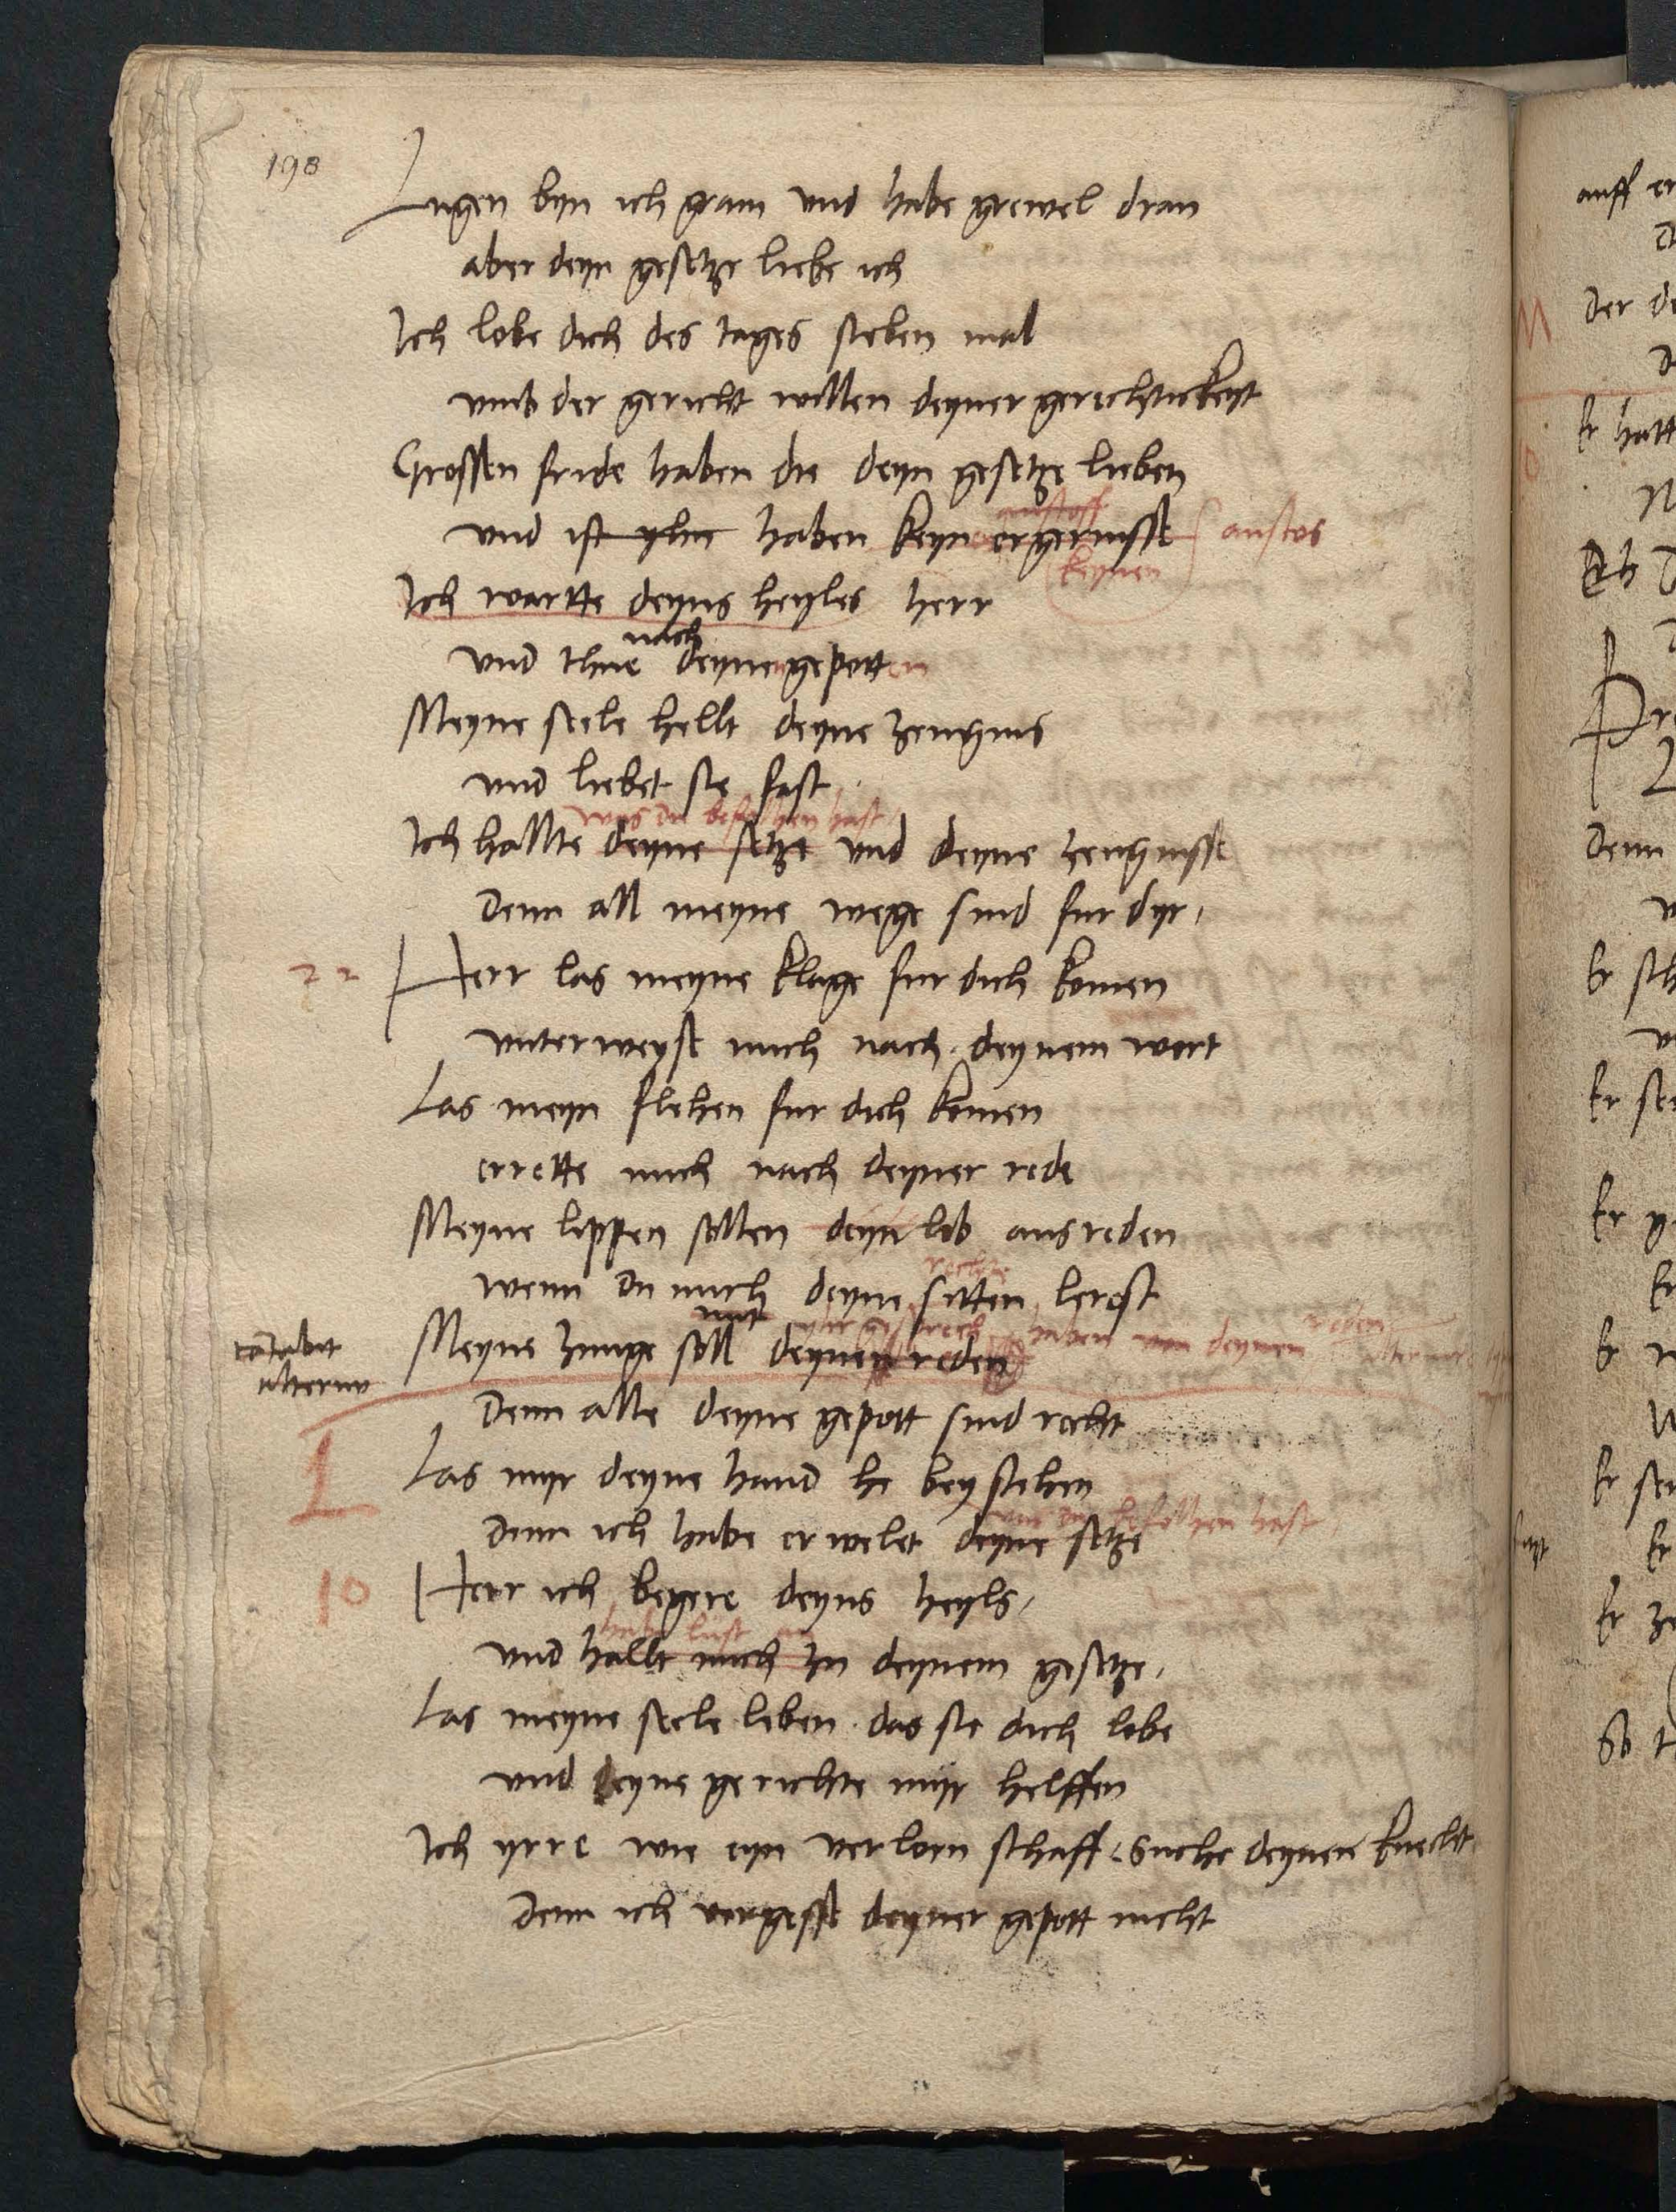 198
Lugen byn ich gram vnd habe grewel dran
aber deyn gesetze liebe ich
Ich lobe dich des tages sieben mal
vmb der gericht willen deyner gerechtickeyt
Grossen fride haben die deyn gesetze lieben
anstoss
vnd ist yhn haben keyn ergernisse anstos
keynen
Ich wartte deyns heyles herr
nach
vnd thue deynen gepotten
Meyne seele hellt deyne zeugnis
vnd liebet sie fast
was du befolhen hast
Ich hallte deyne setze vnd deyne zeugnisse
Denn all meyne wege sind fur dyr /
22 Herr las meyne klage fur dich komen
vnterweyse mich nach deynem wort
Las meyn flehen fur dich komen
errette mich nach deyner rede
Meyne lippen sollen deyn lob ausreden
rechte
wenn du mich deyne sitten lerest
mit yhr gesprech haben von deynen reden
cantabit alternis
Meyne zunge soll deynen reden
Denn alle deyne gepott sind recht
L Las myr deyne hand he beystehen
du befolhen hast
denn ich habe erwelet deyne setze
10 Herr ich begere deyns heyls /
habe lust an
vnd hallt mich zu deynem gesetze /
Las meyne seele leben das sie dich lobe
vnd deyne gerichte myr helffen
Ich yrre wie eyn verlorn schaff / Suche deynen knecht
Denn ich vergesse deyner gepott nicht